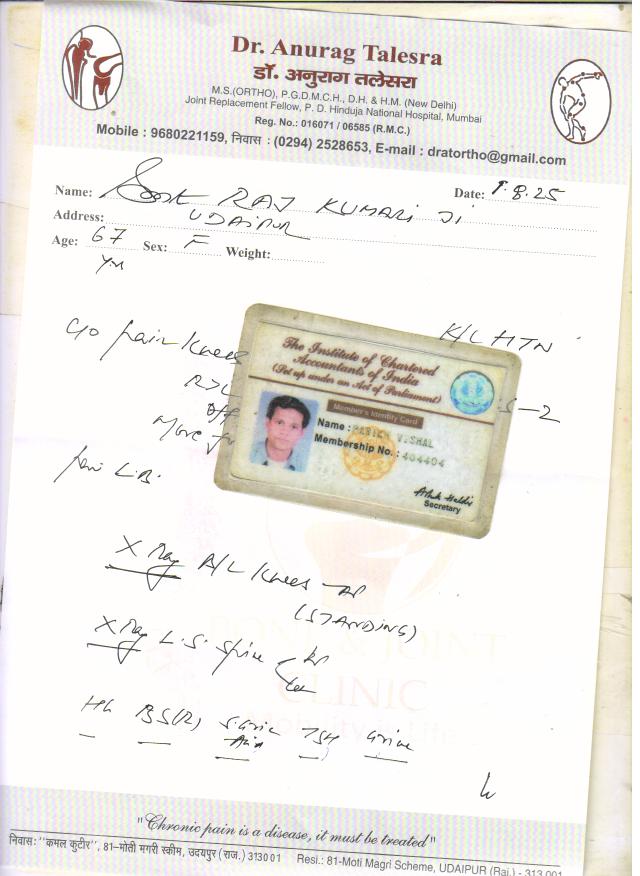 Dr. Anurag Talesra
डॉ. अनुराग तलेसरा
M.S.(ORTHO), P.G.D.M.C.H., D.H. & H.M. (New Delhi)
Joint Replacement Fellow, P. D. Hinduja National Hospital, Mumbai
Reg. No.: 016071 / 06585 (R.M.C.)
Mobile : 9680221159, निवास : (0294) 2528653, E-mail : dratortho@gmail.com
Name: RAJ KUMARI Ji
Date: 1.8.25
Address: UDAIPUR
Age: 67 Sex: F Weight:
yrs
C/o pain knees
K/C HTN
R>L
S-2
More
pain L.B.
The Institute of Chartered
Accountants of India
(Set up under an Act of Parliament)
Member's Identity Card
Name : PARIKH VISHAL
Membership No. : 404404
Secretary
X Ray B/L knees - AP
(STANDING)
X Ray L.S. Spine AP
Lat
BONE & JOINT
CLINIC
Mobility is Life
Hb BS(R) S. Uric Acid TSH Urine
"Chronic pain is a disease, it must be treated"
निवास: "कमल कुटीर", 81-मोती मगरी स्कीम, उदयपुर (राज.) 313001 Resi.: 81-Moti Magri Scheme, UDAIPUR (Raj.) - 313 001